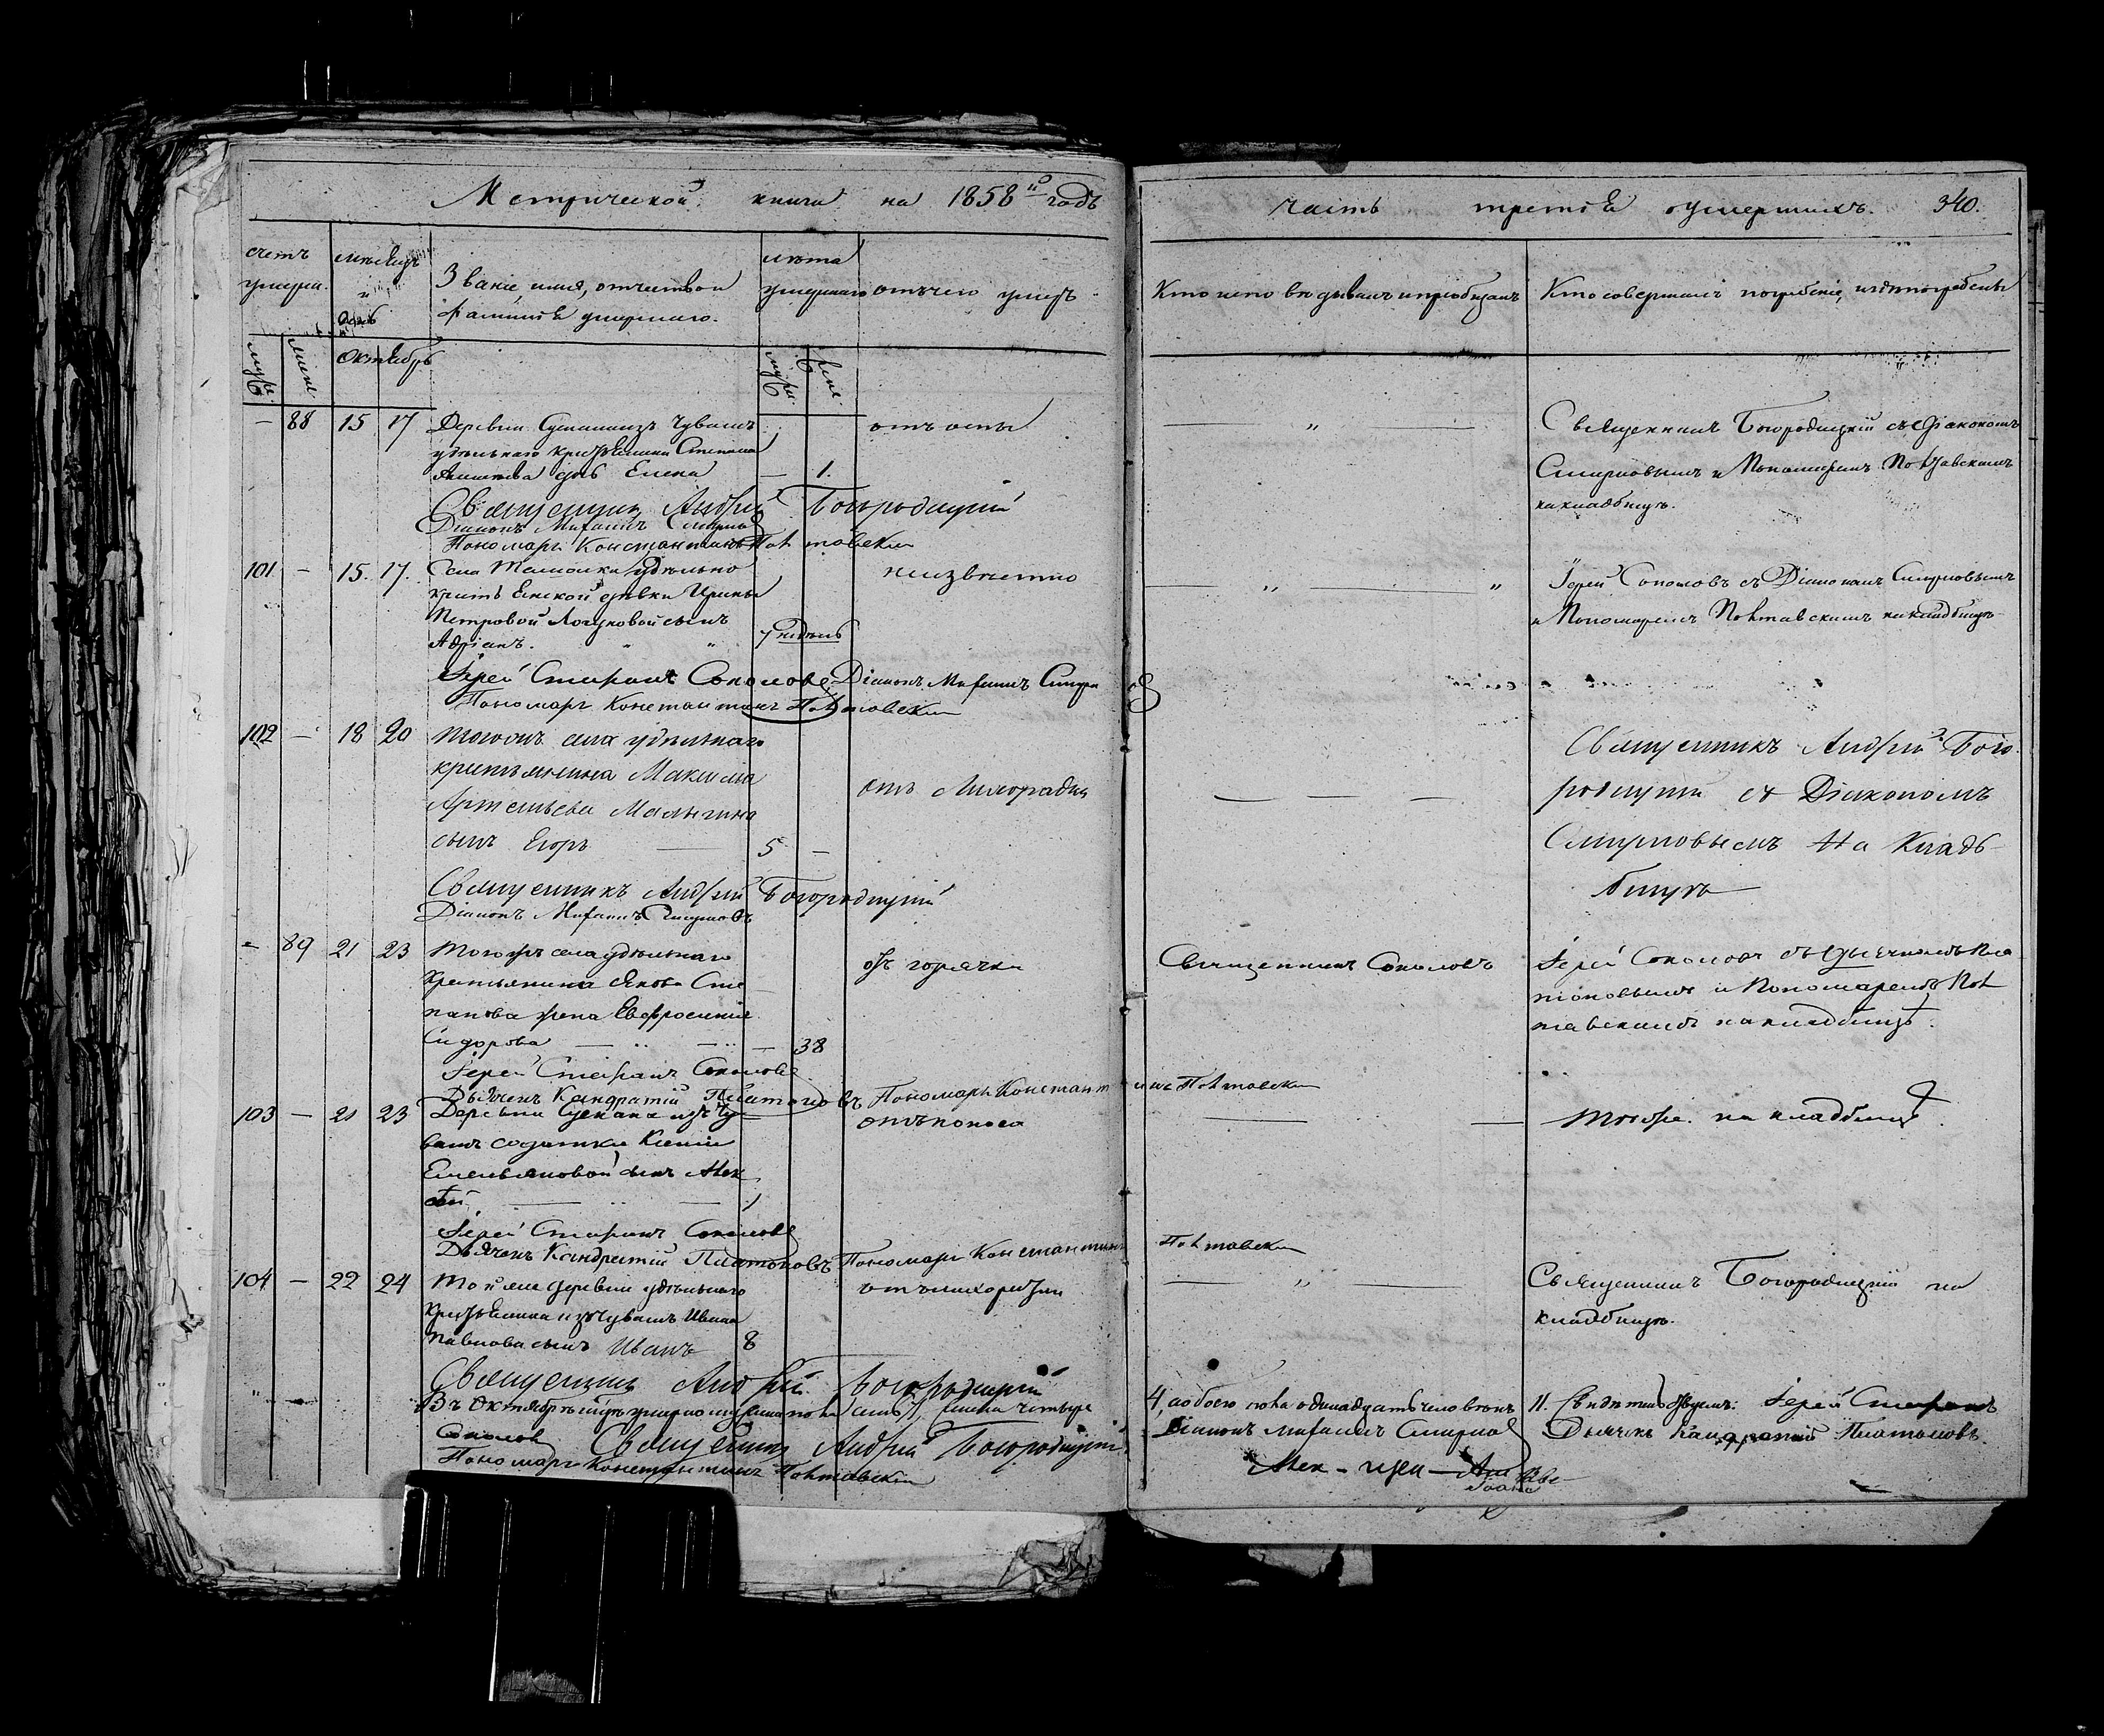 Метрической книги на 1858й годъ
счетъ умерш.
мѣсяцъ и день
Званіе имя, отчество и фамилія умершаго.
лѣта умершаго
отъ чего умеръ
муж.
женс.
Октябрь
муж.
жен.
88 15 17 Деревни изъ Чувашъ
удѣльнаго крестьянина Степана
дочь Елена 1.
отъ оспы
Священникъ Андрей Богородицкій
Діаконъ Михаилъ Смирновъ
Пономарь Константинъ
101 15. 17. Села удѣльно
крестьянской дѣвки Ирины
Петровой сынъ
Адріанъ. 7 недѣль
неизвѣстно
Іерей Стефанъ Соколовъ Діаконъ Михаилъ Смирновъ
Пономарь Константинъ
102 18 20 Тогожъ села удѣльнаго
крестьянина Максима
Артемьева
сынъ Егоръ 5
отъ лихорадки
Священникъ Андрей Богородицкій
Діаконъ Михаилъ Смирновъ
89 21 23 Тогожъ села удѣльнаго
Крестьянина Якова Сте
панова жена Евфросинія
Сидорова 38
отъ горячки
Іерей Стефанъ Соколовъ
Дьячекъ Кандратій Платоновъ Пономарь Константинъ
103 21 23 Деревни изъ Чу
вашъ солдатки Ксеніи
Емельяновой сынъ Алек
сѣй 1
отъ поноса
Іерей Стефанъ Соколовъ
Дьячекъ Кандратій Платоновъ Пономарь Константинъ
104 22 24 Той же деревни удѣльнаго
Крестьянина изъ Чувашъ Ивана
Павлова сынъ Иванъ 8
отъ лихорадки
Священникъ Андрей Богородицкій
Въ Октябрѣ мцѣ умерло мужеска пола семь 7, женска четыре
Соколовъ Священникъ Андрей Богородицкій
Пономарь Константинъ
часть третія умершихъ. 340.
Кто исповѣдывалъ и пріобщалъ
Кто совершалъ погребеніе, и гдѣ погребены
Священникъ Богородицкій съ Діакономъ
Смирновымъ и Пономаремъ
на кладбищѣ.
Іерей Соколовъ съ Діакономъ Смирновымъ
и Пономаремъ на кладбищѣ
Священникъ Андрей Бого
родицкій съ Діакономъ
Смирновымъ На Клад
бищѣ
Священникъ Соколовъ
Іерей Соколовъ съ дьячкомъ Пла
тоновымъ и Пономаремъ
на кладбищѣ.
Тоже. на кладбищѣ.
Священникъ Богородицкій на
кладбищѣ.
4, а обоего пола одинадцать человѣкъ 11. Іерей Стефанъ
Діаконъ Михаилъ Смирновъ Дьячекъ Кандратій Платоновъ.